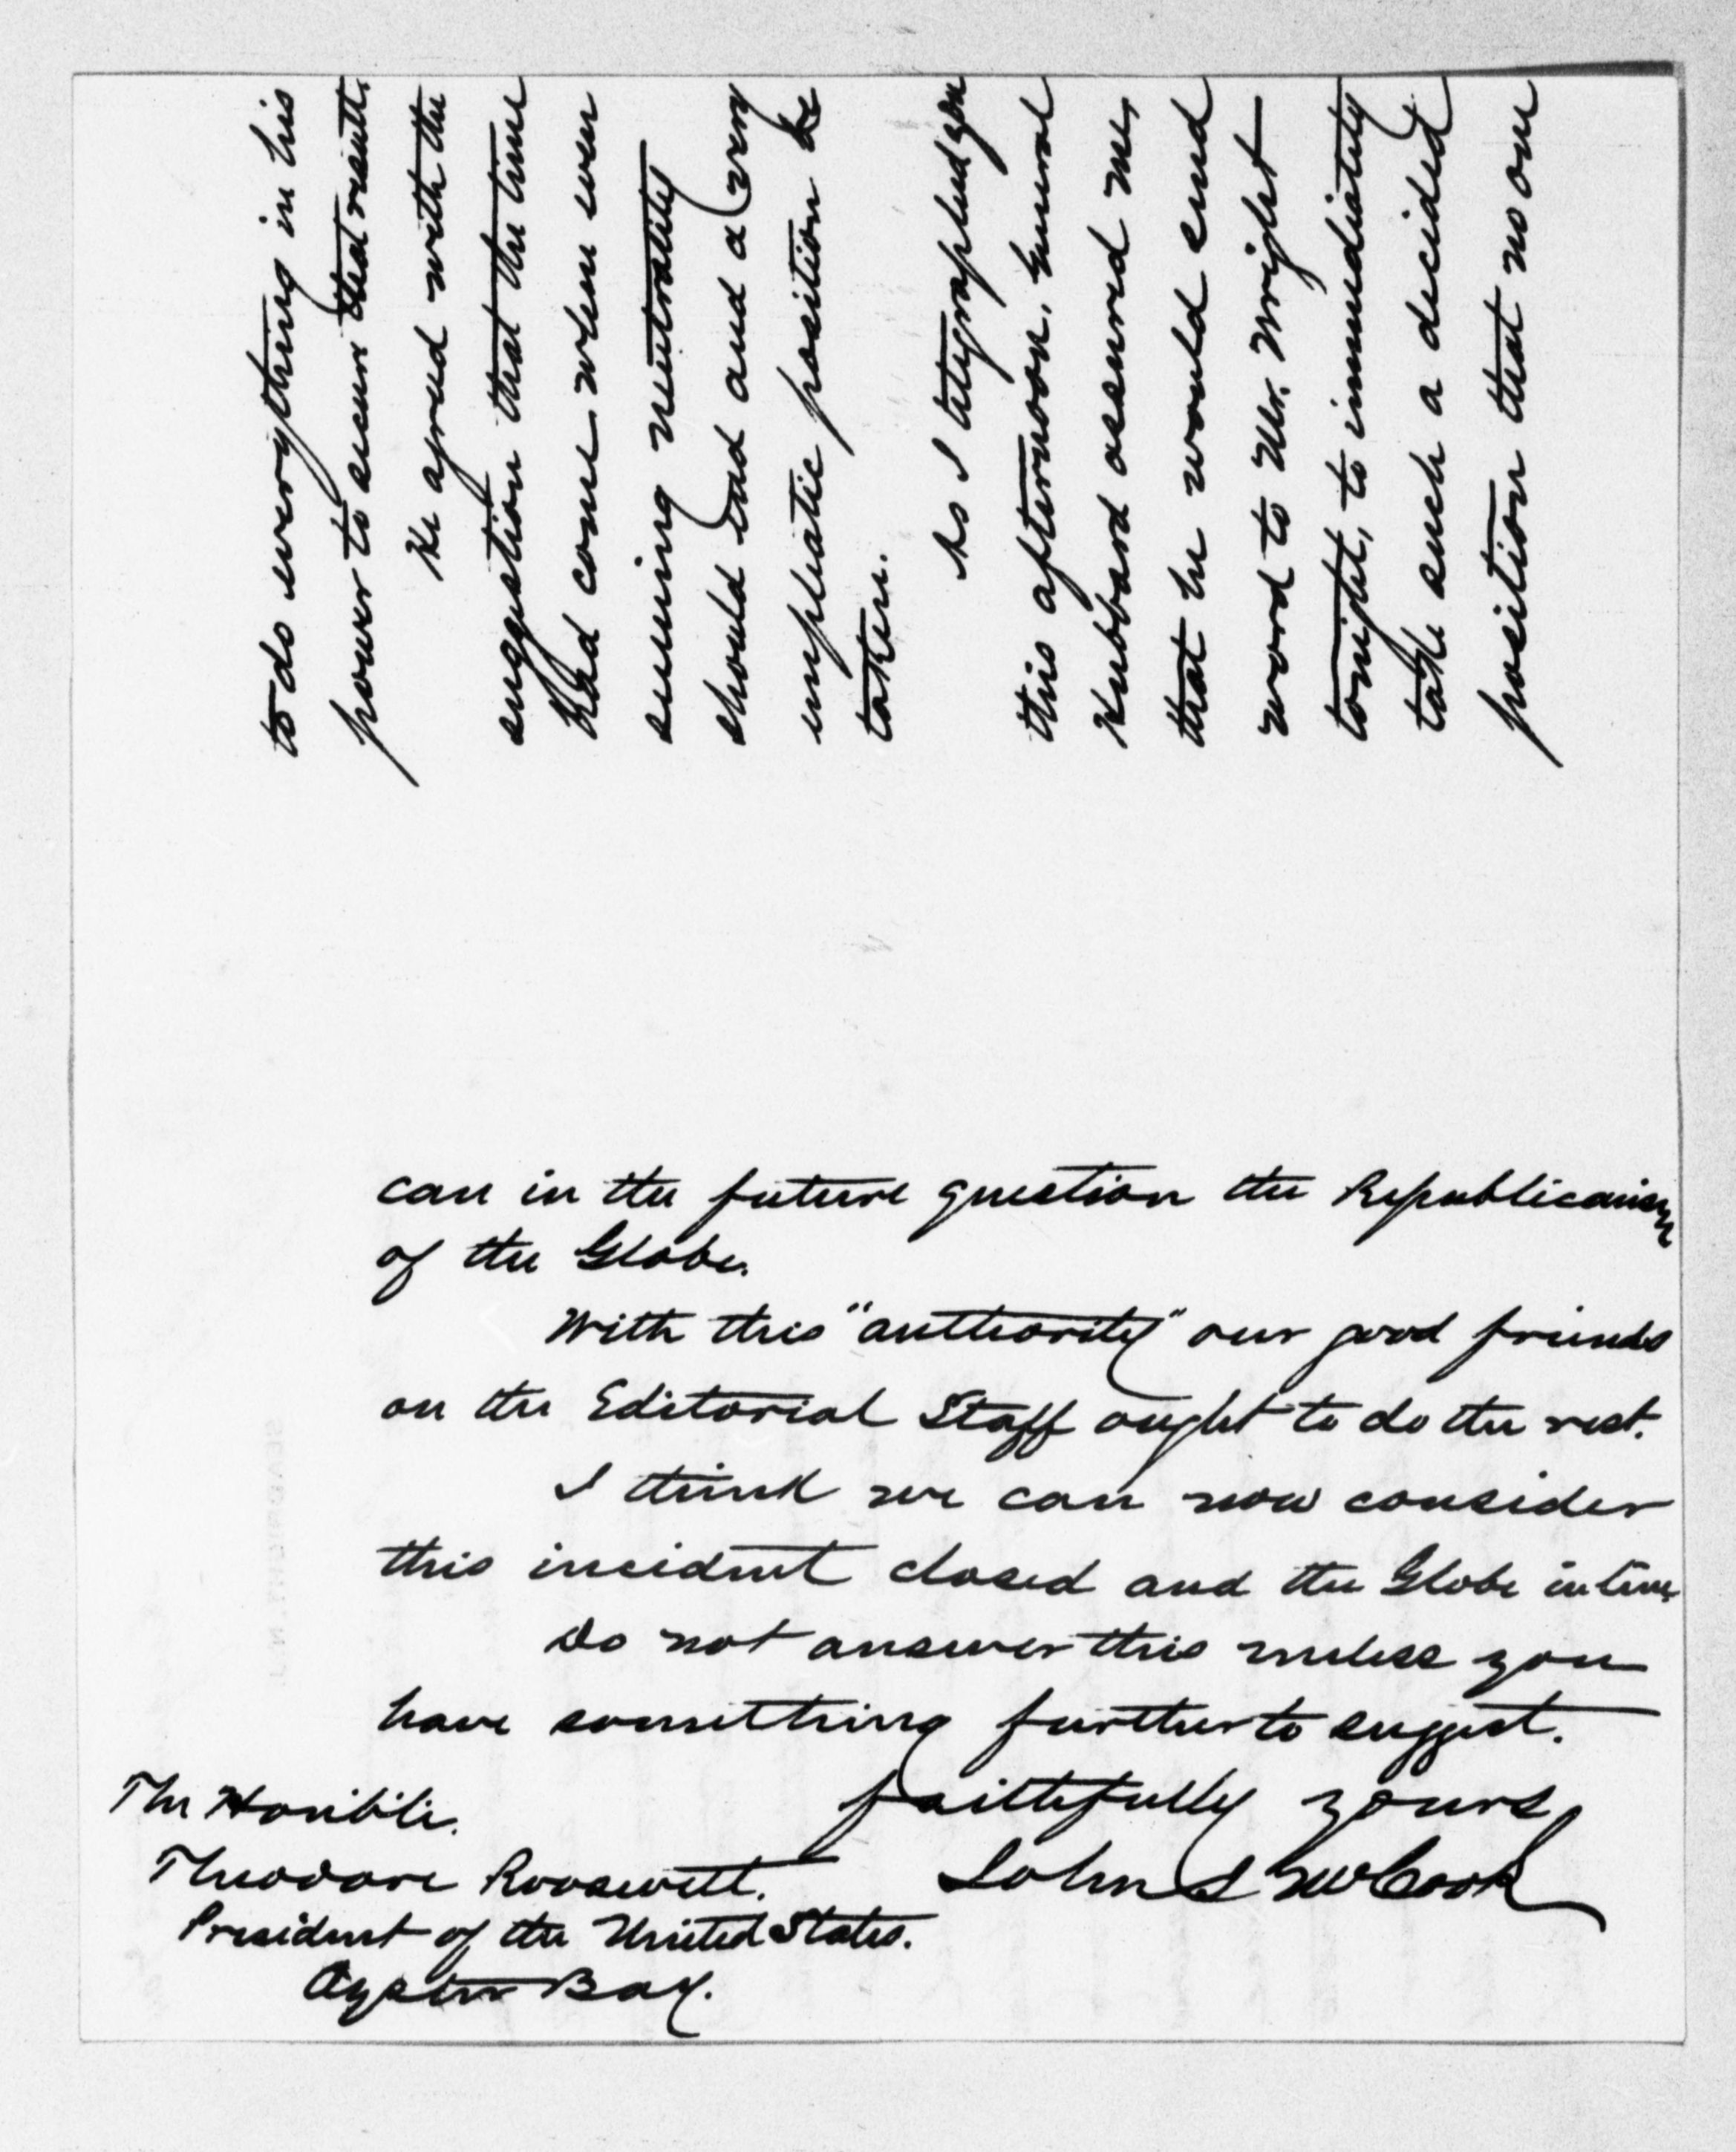 to do everything in his
power to secure that result.
He agreed with the
suggestion that the time
had come when even
seeming neutrality
should end and a very
emphatic position be
taken.
As I telegraphed you
this afternoon, General
Hubbard assured me,
that he would send
word to Mr. Wright
tonight, to immediately
take such a decided
position that no one
can in the future question the Republicanism
of the Globe.
With this "authority" our good friends
on the Editorial Staff ought to do the rest.
I think we can now consider
this incident closed and the Globe in line.
Do not answer this unless you
have something further to suggest.
Faithfully yours,
John J McCook
The Honible.
Theodore Roosevelt.
President of the United States.
Oyster Bay.